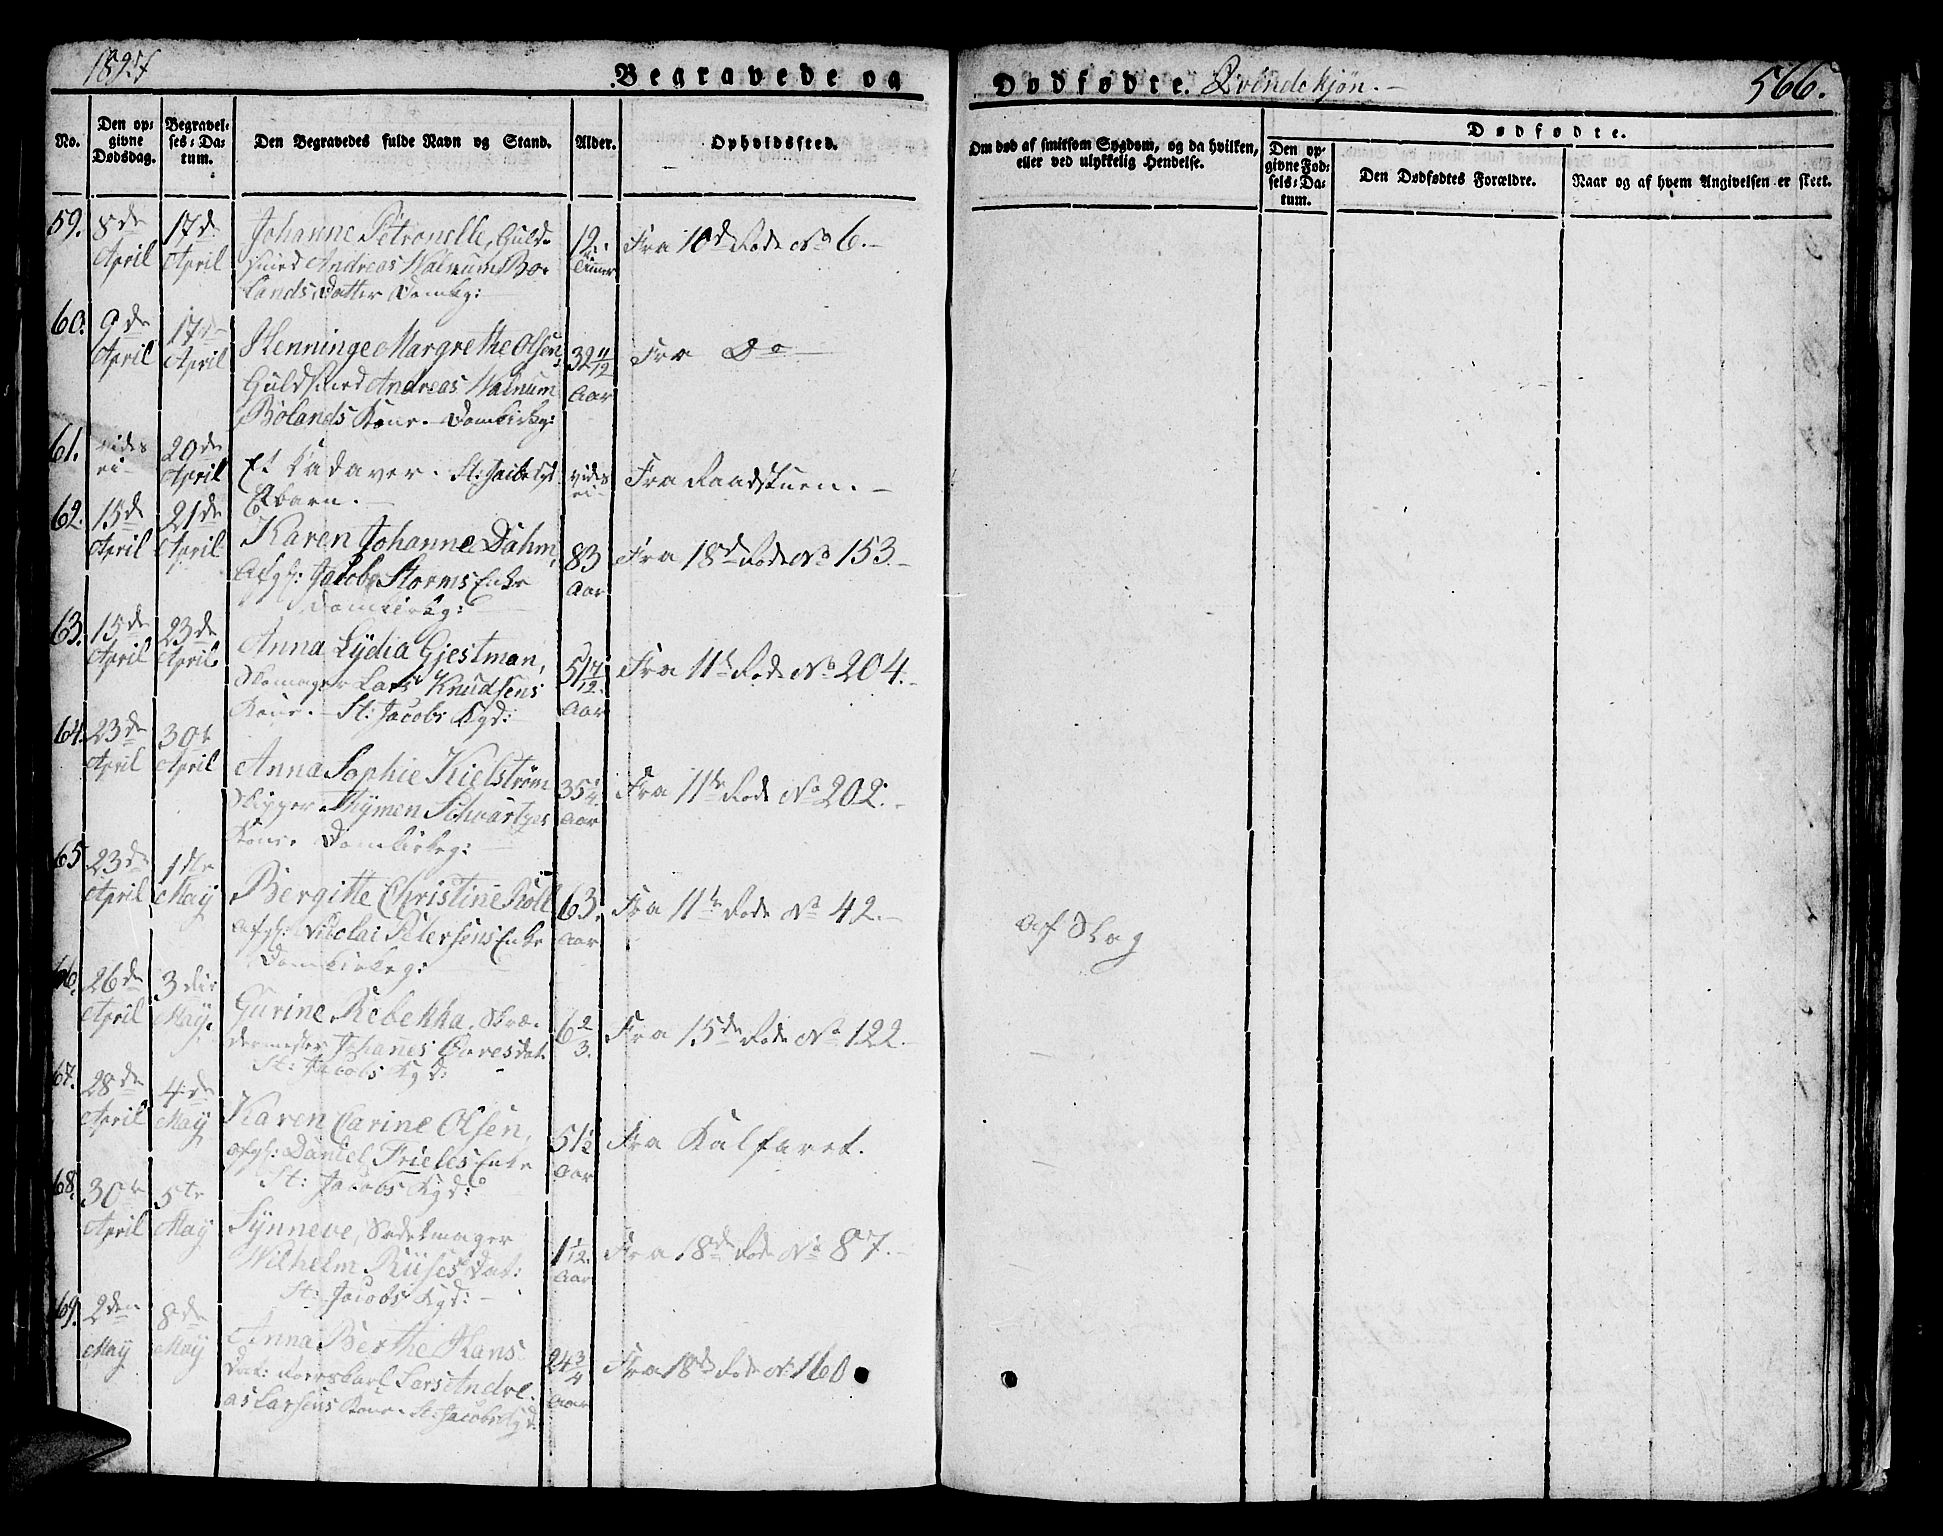 Begravede og
Dødfødte. Qvindekjøn.
566.
No.
Den opgivne Dødsdag.
Begravelses-Datum.
Den Begravedes fulde Navn og Stand.
Alder.
Opholdssted.
Om død af smitsom Sygdom, og da hvilken,
eller ved ulykkelig Hendelse.
Dødfødte.
Den opgivne Fødsels-Datum.
Den Dødfødtes Forældre.
Naar og af hvem Angivelsen er skeet.
59. 8de April 17de April Johanne Petronelle, Guld- 12 Timer Fra 10de Rode No 6.
smed Andreas Walnum Bo-
lands Datter Domkg:
60. 9de April 17de April Henninge Margrethe Olsen, 32 11/12 Aar Fra Do
Guldsmed Andreas Walnum
Bolands Kone. Domkirkg:
61. vides ei 20de April Et Kadaver. St: Jacobs vides ei Fra Raadstuen.
62. 15de April 21de April Karen Johanne Dahm, 83 Aar Fra 18de Rode No 153.
Afg: Jacob Storms Enke
Domkirkg:
63. 15de April 23de April Anna Lydia Gjestman, 51 Aar Fra 11te Rode No 204.
Skomager Lars Knudsens
Kone. St: Jacobs Kgd:
64. 23de April 30te April Anna Sophie Kielstrøm 35 1/4 Aar Fra 11te Rode No 202.
Skipper Thymen Schwartzes
Kone. Domkirkg:
65. 23de April 1ste May Bergitte Christine Roll 63. Aar Fra 11te Rode No 42. Af Slag
Afg: Nicolai Petersens Enke
Domkirkeg:
66. 26de April 3die May. Gurine Rebekka, Skræ- 6 2/3. Fra 15de Rode No 122.
dermester Johanes dat.
St: Jacobs Kgd:
67. 28de April 4de May Karen Carine Olsen, 51 1/2 Aar Fra Kalfaret.
afg: Daniel Frieles Enke
St: Jacobs Kgd:
68. 30te April 5te May Synneve, Sadelmager 1 1/12. Aar Fra 18de Rode No 87.
Wilhelm Rüses Dat:
St: Jacobs Kgd:
69. 2den May 8de May Anna Berthe Hans 24 3/4 Aar Fra 18de Rode No 160
Dat: Lars Andre-
as Larsens Kone. St: Jacobs Kgd: